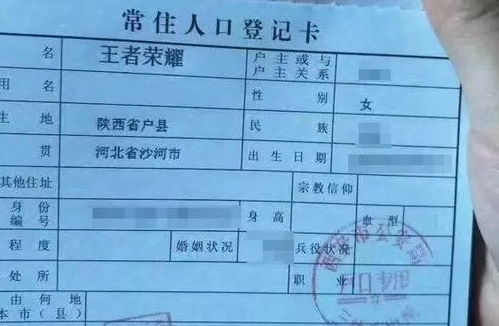 常住人口登记卡
名 王者荣耀 户主或与户主关系
用名 性别 女
生地 陕西省户县 民族
贯 河北省沙河市 出生日期
其他住址 宗教信仰
身份编号 身高 血型
程度 婚姻状况 兵役状况
处所 职业
由何地
本市(县)